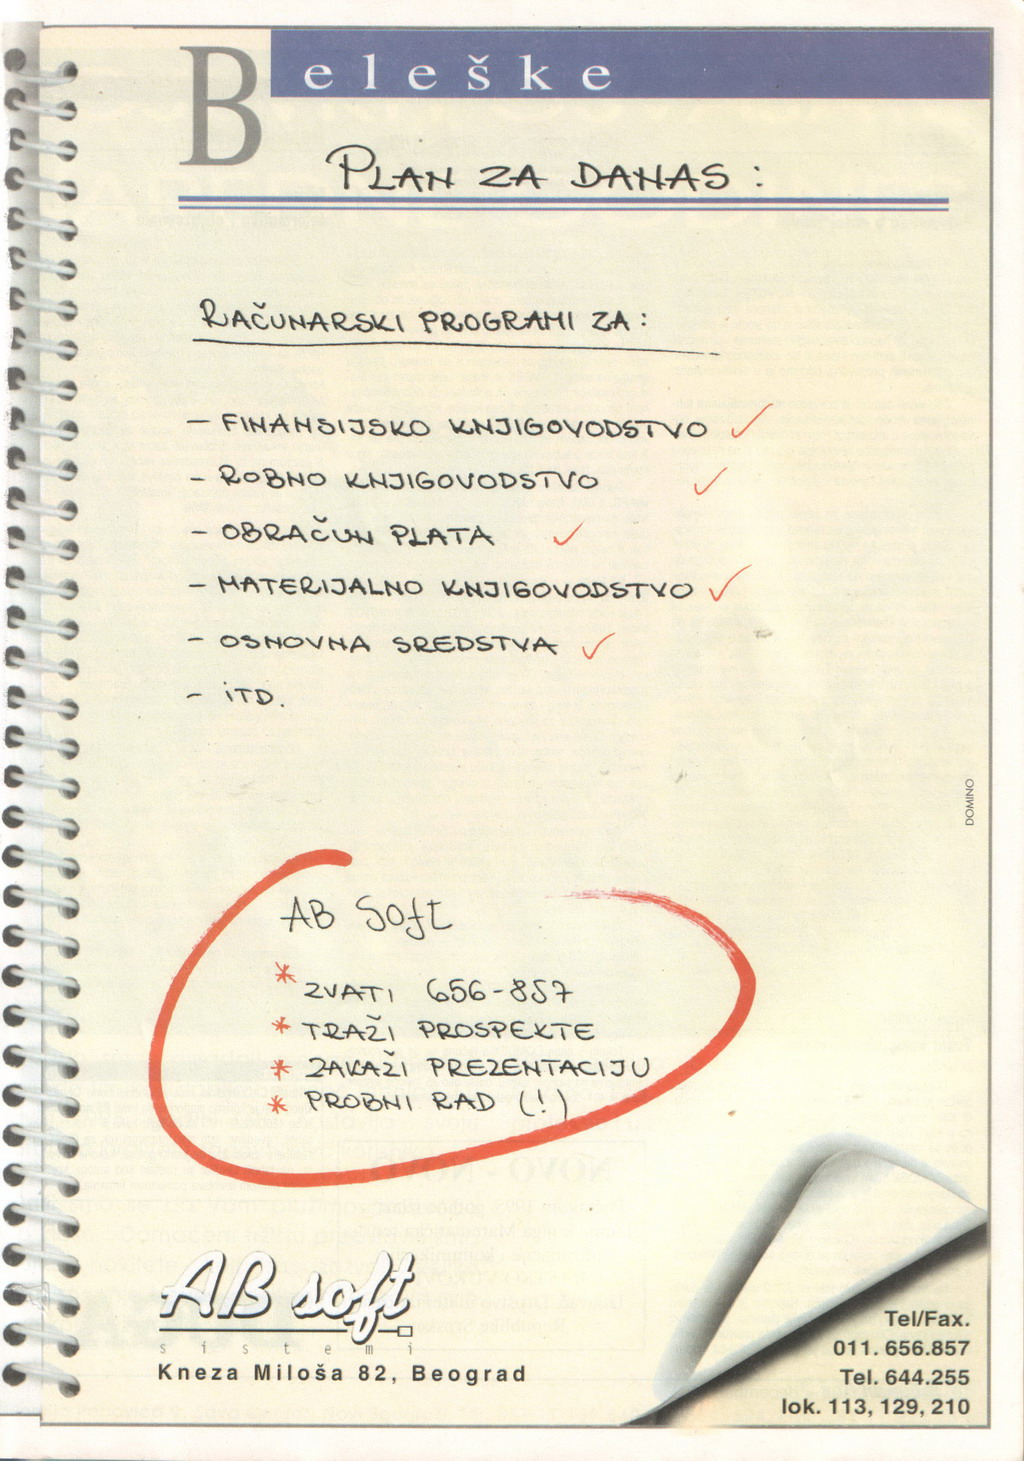 Beleške
PLAN ZA DANAS:
RAČUNARSKI PROGRAMI ZA:
- FINANSIJSKO KNJIGOVODSTVO ✓
- ROBNO KNJIGOVODSTVO ✓
- OBRAČUN PLATA ✓
- MATERIJALNO KNJIGOVODSTVO ✓
- OSNOVNA SREDSTVA ✓
- ITD.
DOMINO
AB Soft
* ZVATI 656-857
* TRAŽI PROSPEKTE
* ZAKAŽI PREZENTACIJU
* PROBNI RAD (!)
AB soft
sistemi
Kneza Miloša 82, Beograd
Tel/Fax.
011. 656.857
Tel. 644.255
lok. 113, 129, 210